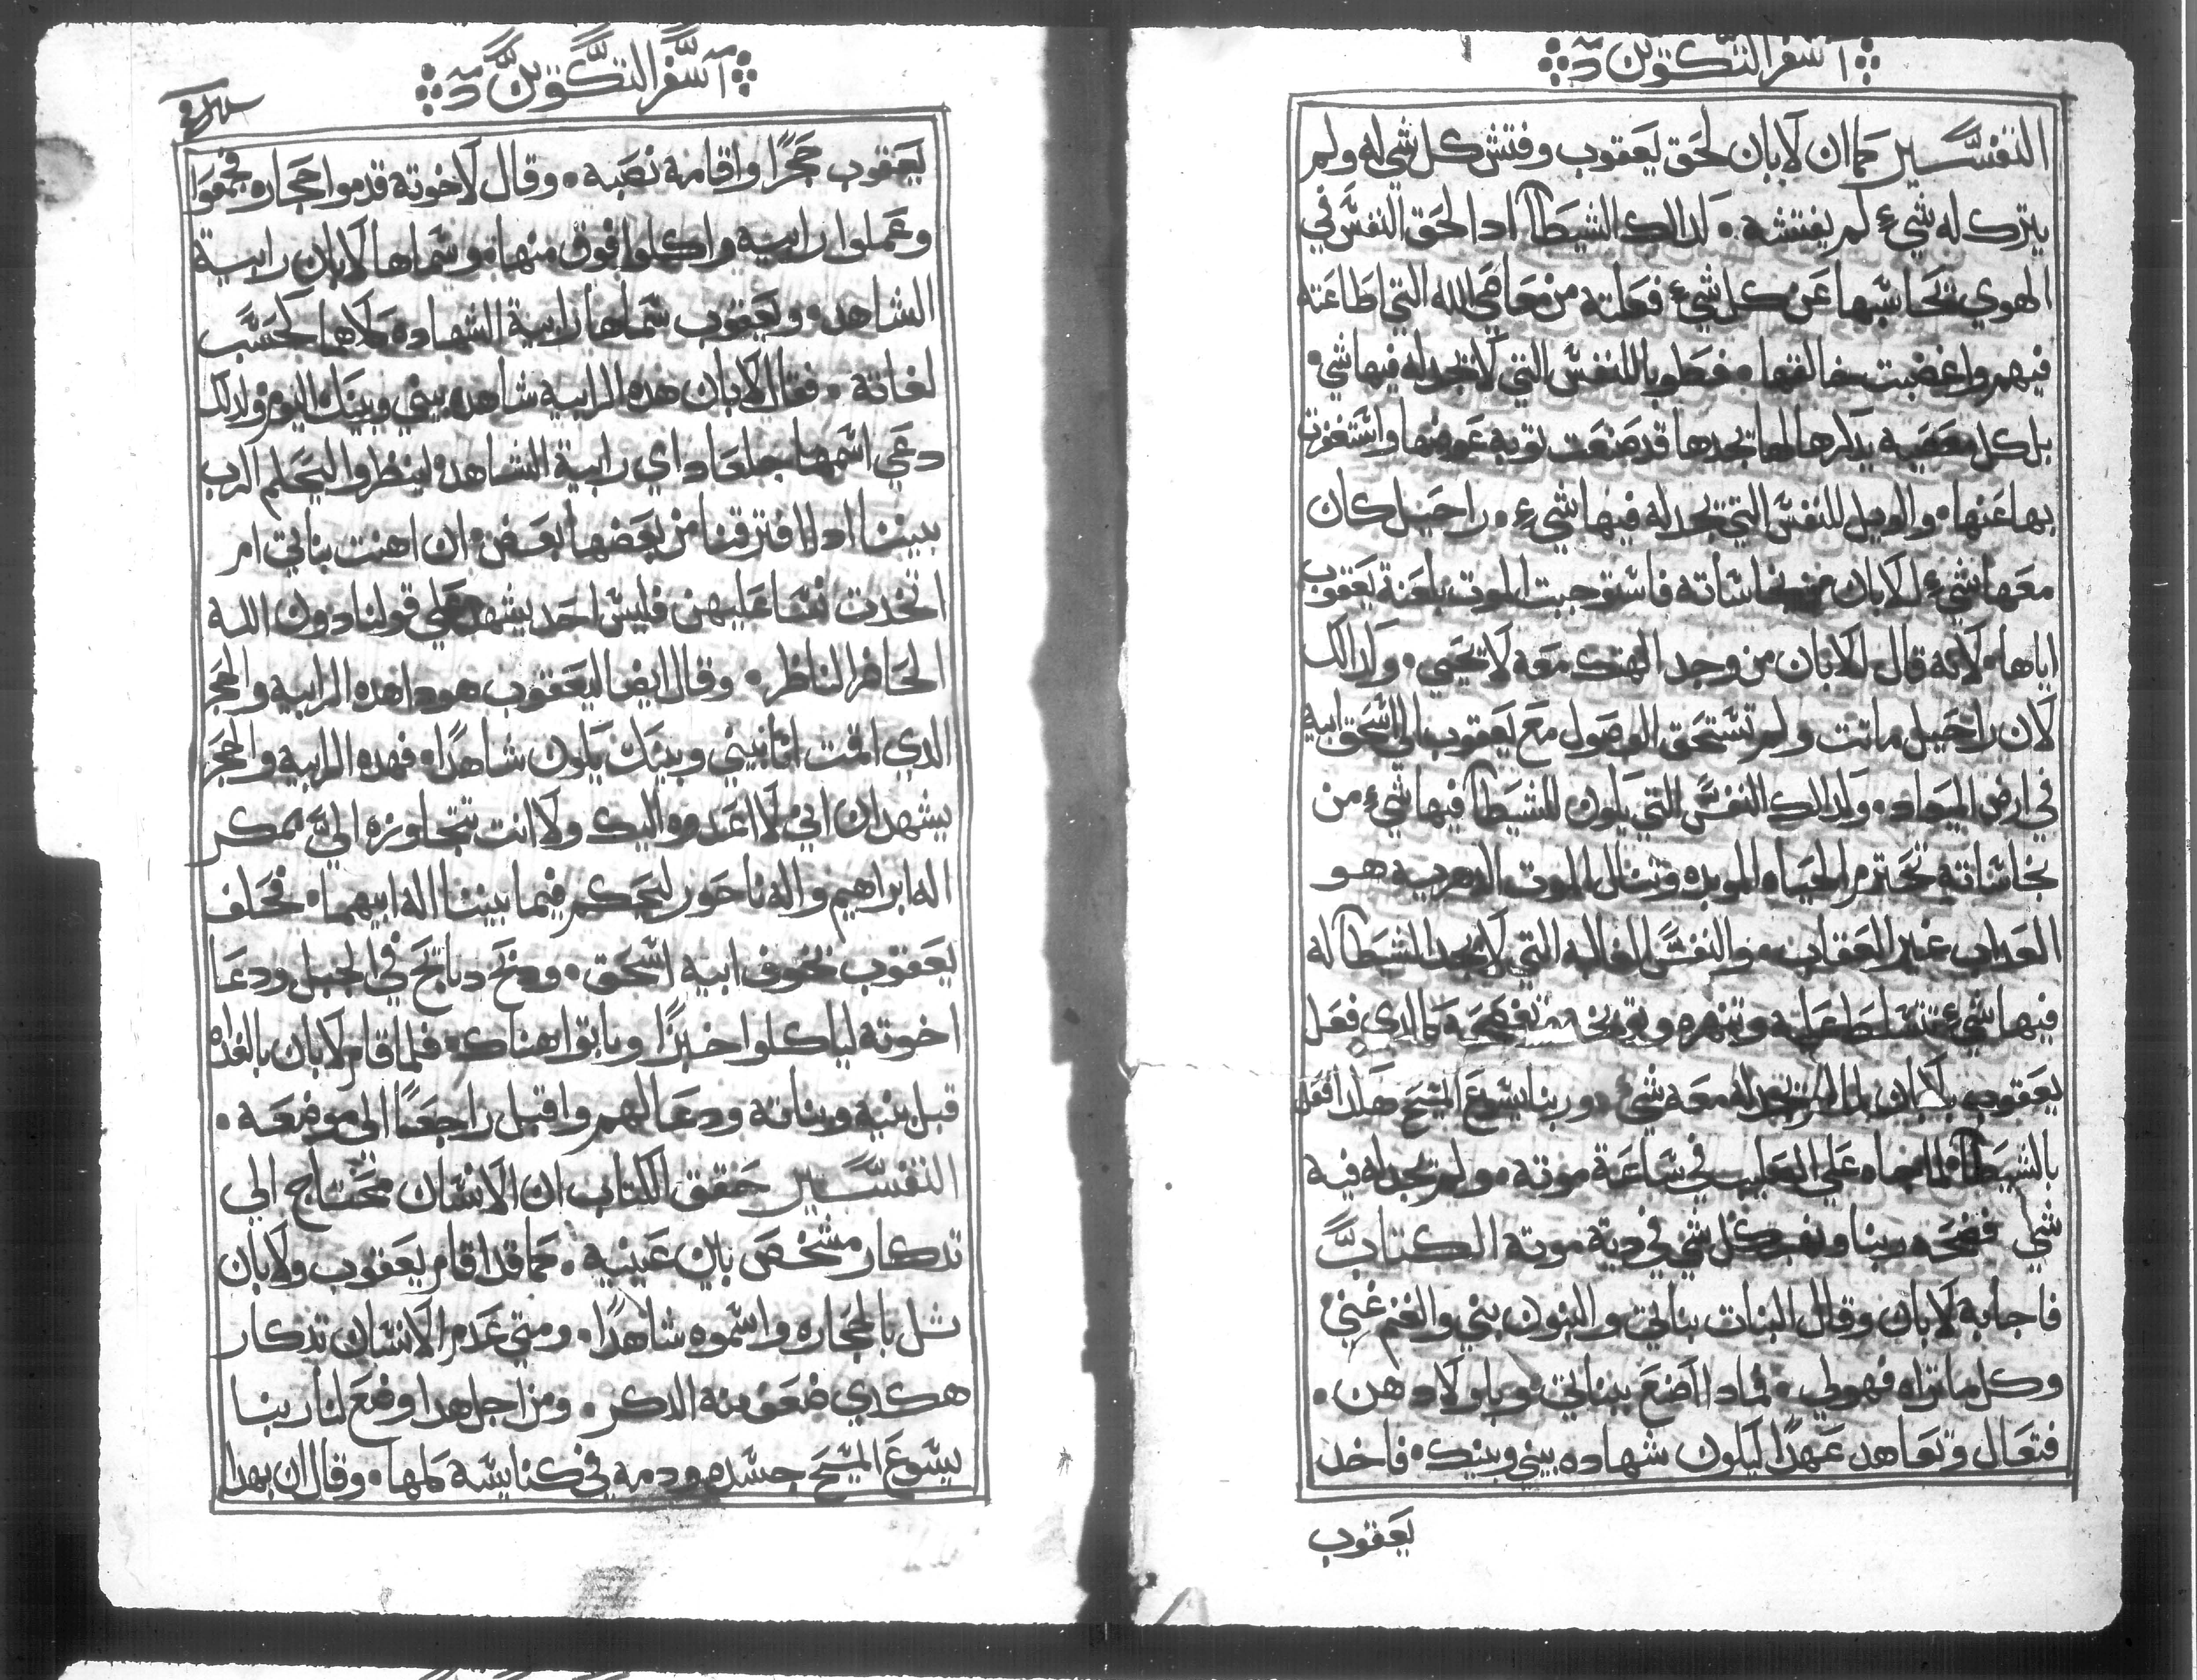 سفر التكوين
التفسير كما ان لابان لحق يعقوب وفتش كل شي له ولم
يترك له شيء لم يفتشه . كدالك الشيطان ادا لحق النفس في
الهوي يحاسبها عن كل شيء فعلته من معاصي الله التي اطاعته
فيهم واغضبت خالقها . فطوبا للنفس التي لا يجد له فيها شي
بل كل معصيه يدكرها لها يجدها قد صنعت توبه عوضها واستغفرت
بها عنها . والويل للنفس التي يجد له فيها شيء . راحيل كان
معها شيء للابان من نجاساته فاستوجبت الموت بلعنة يعقوب
اياها . لانه قال للابان من وجد الهتك معه لا يحيي . ولدالك
لان راحيل ماتت ولم تستحق الوصول مع يعقوب الي اسحق ابيه
في ارض الميعاد . وكدالك النفس التي يكون للشيطان فيها شيء من
نجاساته تحترم الحياه الموبده وتنال الموت الدهريه هو
العداب غير العقاب . والنفس الغالبه التي لا يجد الشيطان له
فيها شيء تتسلط عليه وتنهره وتوبخه وتفضحه كالدي فعل
يعقوب بلابان لما لم يجد له معه شيء . وربنا يسوع المسيح هكدا فعل
بالشيطان لما جاه علي الصليب في ساعة موته . ولم يجد له فيه
شي ففضحه ربنا ونهب كل شي في دية موته الكتاب
فاجابه لابان وقال البنات بناتي والبنون بني والغنم غنمي
وكل ما تراه فهو لي . فمادا اصنع ببناتي وباولادهن .
فتعال نتعاهد عهدًا ليكون شهاده بيني وبينك . فاخد
يعقوب
سفر التكوين
يعقوب حجرًا واقامه نصبه . وقال لاخوته قدموا حجاره فجمعوا
وعملوا رابيه واكلوا فوق منها . وسماها لابان رابية
الشاهد . ويعقوب سماها رابية الشهاده كلاهما لحسب
لغاته . فقال لابان هده الرابيه شاهده بيني وبينك اليوم ولدلك
دعي اسمها جلعاد اي رابية الشاهد . لينظر واليحكم الرب
بيننا ادا افترقنا من بعضها بعض . ان اهنت بناتي ام
اتخدت نسا عليهن فليس احد يشهد علي قولنا دون الله
الحاضر الناظر . وقال ايضا ليعقوب هودا هده الرابيه والحجر
الدي اقمت انا بيني وبينك يكون شاهدًا . فهده الرابيه والحجر
يشهدان اني لا اعدوه اليك ولا انت تتجاوزه الي بمكر
اله ابراهيم واله ناحور ليحكم فيما بيننا اله ابيهما . فحلف
يعقوب بخوف ابيه اسحق . ودبح دبايح في الجبل ودعا
اخوته لياكلوا خبزًا وباتوا هناك . فلما قام لابان بالغداه
قبل بنيه وبناته ودعا لهم واقبل راجعًا الي موضعه .
التفسير حقق الكتاب ان الانسان محتاج الي
تدكار مشخص باين عينيه . كما قد اقام يعقوب ولابان
تل بالحجاره واسموه شاهدًا . ومتي عدم الانسان تدكار
هكدي ضعف منه الدكر . ومن اجل هدا وضع لنا ربنا
يسوع المسيح جسده ودمه في كنايسه كلها . وقال ان بهدا